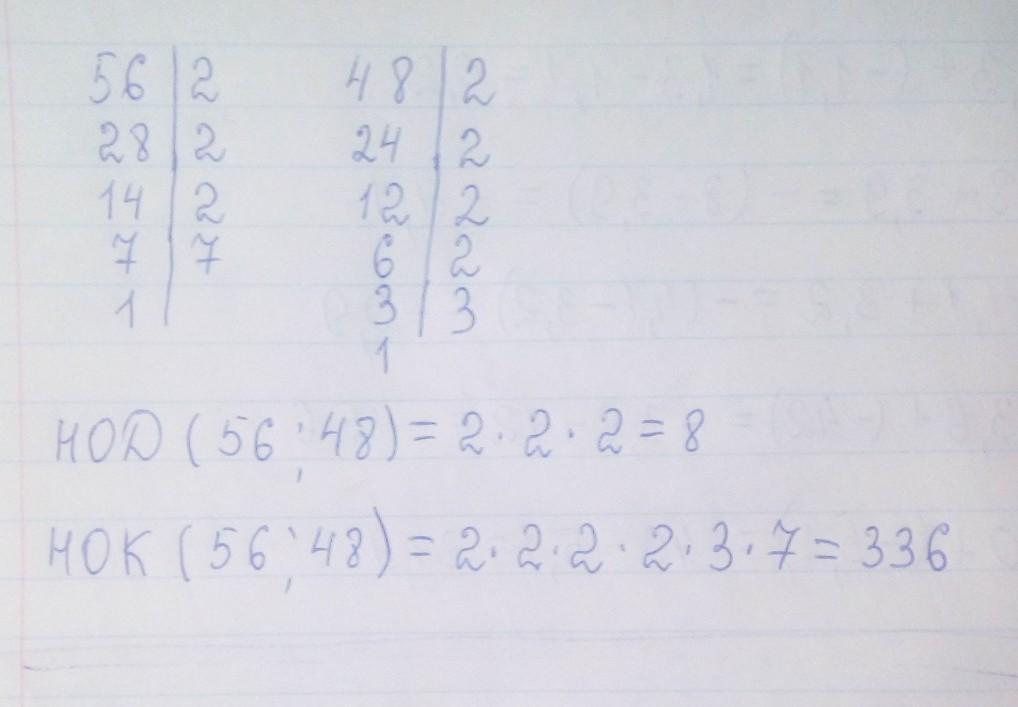 56 | 2 48 | 2
28 | 2 24 | 2
14 | 2 12 | 2
7 | 7 6 | 2
1 | 3 | 3
1
НОД (56; 48) = 2 · 2 · 2 = 8
НОК (56; 48) = 2 · 2 · 2 · 2 · 3 · 7 = 336